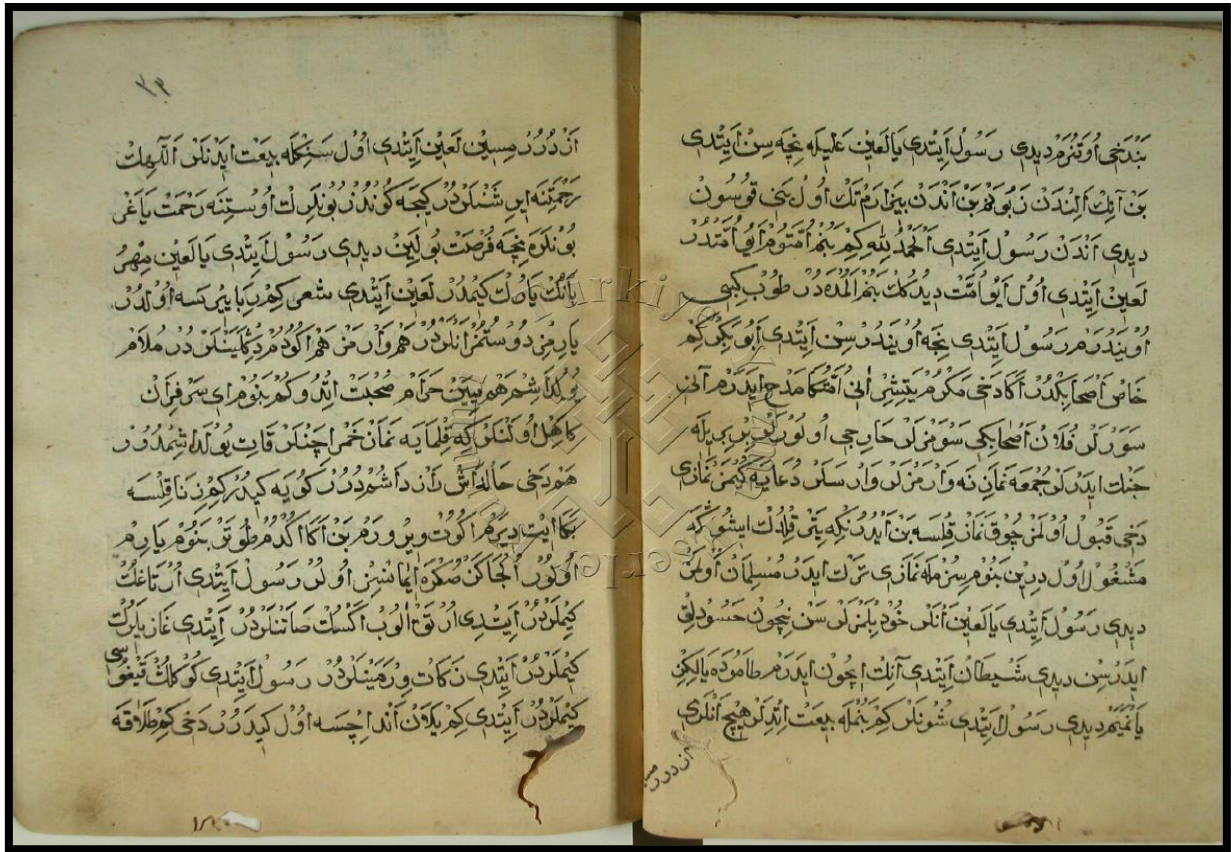 بَنْدَخِي اُوتَنُرَمْ دِيدِي رَسُولْ اَيتْدِي يَالَعِينْ عَلِيلَه نِجَه سِنْ اَيتْدِي
بَنْ آنِكْ اَلِنْدَنْ زَبُونَمْ بَنْ اَندَنْ بِيزَارَمْ تَكْ اُولْ بَنِي قُوسُونْ
دِيدِي اَندَنْ رَسُولْ اَيتْدِي اَلْحَمْدُ لِلّٰهِ كِمْ بَنُمْ اُمَّتُومْ اَيُو اُمَّتْدُرْ
لَعِينْ اَيتْدِي اُولْ اَيُو اُمَّتْ دِيدُكُكْ بَنُمْ اَلُمْدَه دُرْ طُوبْ كِبِي
اُويْنَدُرَمْ رَسُولْ اَيتْدِي نِجَه اُويْنَدُرْسِنْ اَيتْدِي اَبُو بَكِرْ كِمْ
خَاصْ اَصْحَابُكْدُرْ اَكَا دَخِي مَكْرُمْ يَتِشُرْ اَنِي اُمَّتُكَا مَدْحْ اِيدَرَمْ آنِي
سَوَرْلَرْ فُلَانْ اَصْحَابِكِي سَوْمَزْلَرْ خَارِجِي اُولُورْلَرْ بِرْ بِرِيلَه
جَنْكْ اِيدَرْلَرْ جُمْعَه نَمَازِنَه وَارْمَزْلَرْ وَارْسَلَرْ دُعَايَه كَيْمَزْ نَمَازِي
دَخِي قَبُولْ اُولْمَزْ چُوقْ نَمَازْ قِلْسَه بَنْ اَيدُرْنكِه يَتَرْ قِلْدُكْ اِيشُوكَه
مَشْغُولْ اُولْ دِرِينْ بَنُومْ سِزمَلَه نَمَازِي تَرْكْ اِيدَرْ مُسِلْمَانْ اُولْمَزْ
دِيدِي رَسُولْ اَيتْدِي يَالَعِينْ اَنْلَرْ خُودْ بِلْمَزْلَرْ سَنْ نِيچُونْ حَسُودْلِقْ
اِيدَرْسِنْ دِيدِي شَيْطَانْ اَيتْدِي آنِكْ اِيچُونْ اِيدَرَمْ طَامُودَه يَالِكُزْ
يَانْمَيَمْ دِيدِي رَسُولْ اَيتْدِي شُونْلَرْ كِمْ بَنُملَه بِيعَتْ اِتْدِلَرْ هِيچْ اَنْلَرِي
اَزْدُرُرْ
٣٣
اَزْدُرُرْ مِسِينْ لَعِينْ اَيتْدِي اُولْ سَنِكْلَه بِيعَتْ اِيدَنْلَرْ اَللّٰهِكْ
رَحْمَتِنَه اِيرِشَنْلَرْدُرْ كِيجَه كُونْدُزْ بُونْلَرِكْ اُوسْتِنَه رَحْمَتْ يَاغَرْ
بُونْلَرَه نِجَه فُرْصَتْ بُولَيِنْ دِيدِي رَسُولْ اَيتْدِي يَالَعِينْ
يَارِكْ كِيمْدُرْ لَعِينْ اَيتْدِي شَعِي كِمْ رِبَا يِيرسَه اُولْدُرْ
يَارِمْ دُوسْتُمْ اَنْلَرْدُرْ هَمْ وَارْ هَمْ اَكُودُمْ دِكْلَيَنْلَرْدُرْ مُلَازِمْ
يُولْدَاشِمْ هَمْ يِيَنْ حَرَامْ صُحْبَتْ اِتْدُوكُمْ بَنُومْ اَيْ سَرْفِرَازْ
كَاهِلْ اُولَنْلَرْ كَه قِلْمَايَه نَمَازْ خَمْرْ اِچَنْلَرْ قَاتِ يُولْدَاشِمْدُرُرْ
هَمْ دَخِي حَالْدَاشْ رَازْدَاشِمْدُرُرْ كِمْ زِنَا قِلْسَه
بَكَا اَكُوتْ وِيرُورَمْ بَنْ اَكَا اَكُدُمْ طُوتْ بَنُومْ يَارِمْ
اُولُورْ اُولْجَاكَزْ صُكْرَه اِيمَانْسِزْ اُولُرْ رَسُولْ اَيتْدِي اُرْتَاغُكْ
كِيمْلَرْدُرْ اَيتْدِي اَرْتُقْ اَلُوبْ اَكْسُكْ صَاتَنْلَرْدُرْ اَيتْدِي غَازِيلَرُكْ
كِيمْلَرْدُرْ اَيتْدِي زَكَاتْ وِرْمَيَنْلَرْدُرْ رَسُولْ اَيتْدِي كُوكْلُكْ قَيْغُوسِي
كِيمْلَرْدُرْ اَيتْدِي كِمْ يَلَانْ اَنْدْ اِچْسَه اُولْ كِيدُرُرْ دَخِي كِمْ طَلَاقَه